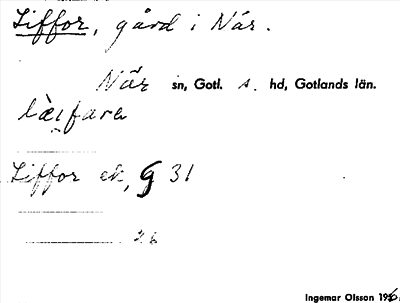 Liffor, gård i När.
När sn, Gotl. s. hd, Gotlands län.
Liffor ek, G 31
Ingemar Olsson 196